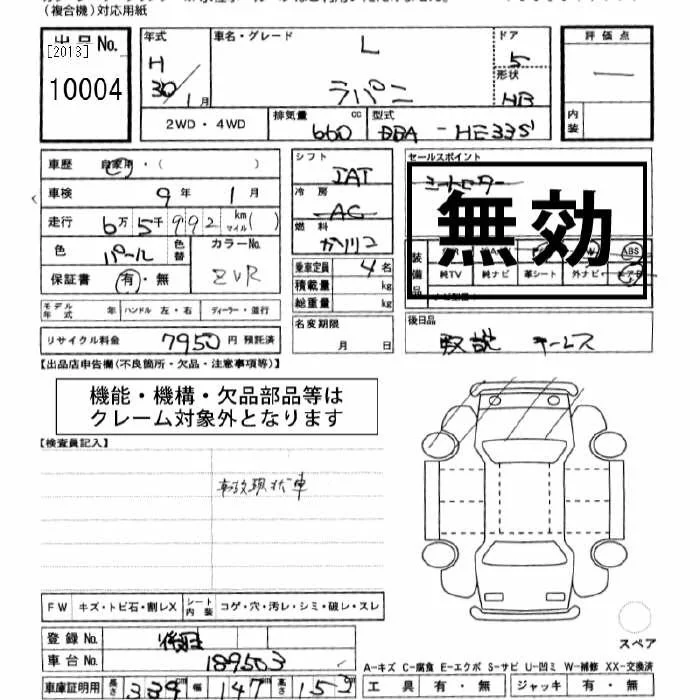 (複合機)対応用紙
出品No.
[2013]
10004
年式
H
30/1月
車名・グレード
L
ラパン
ドア
5
形状
HB
評価点
―
内装
2WD・4WD
排気量
660
cc
型式
DBA-HE33S
車歴
自家用・( )
車検
9年1月
走行
6万5千992
km
マイル
( )
色
パール
色替
カラーNo.
ZVR
保証書
有・無
シフト
IAT
冷房
AC
燃料
ガソリン
乗車定員
4名
積載量
kg
総重量
kg
セールスポイント
シートヒーター
無効
装備品
ABS
純TV
純ナビ
革シート
外ナビ
エアB
モデル年式
年
ハンドル 左・右
ディーラー・並行
リサイクル料金
7950円
預託済
名変期限
月 日
後日品
取説 キーレス
【出品店申告欄(不良箇所・欠品・注意事項等)】
機能・機構・欠品部品等は
クレーム対象外となります
【検査員記入】
事故現状車
FW
キズ・トビ石・割レX
シート内装
コゲ・穴・汚レ・シミ・破レ・スレ
登録No.
車台No.
189503
車庫証明用
長さ
339
cm
幅
147
cm
高さ
153
スペア
A-キズ C-腐食 E-エクボ S-サビ U-凹ミ W-補修 XX-交換済
工具
有・無
ジャッキ
有・無